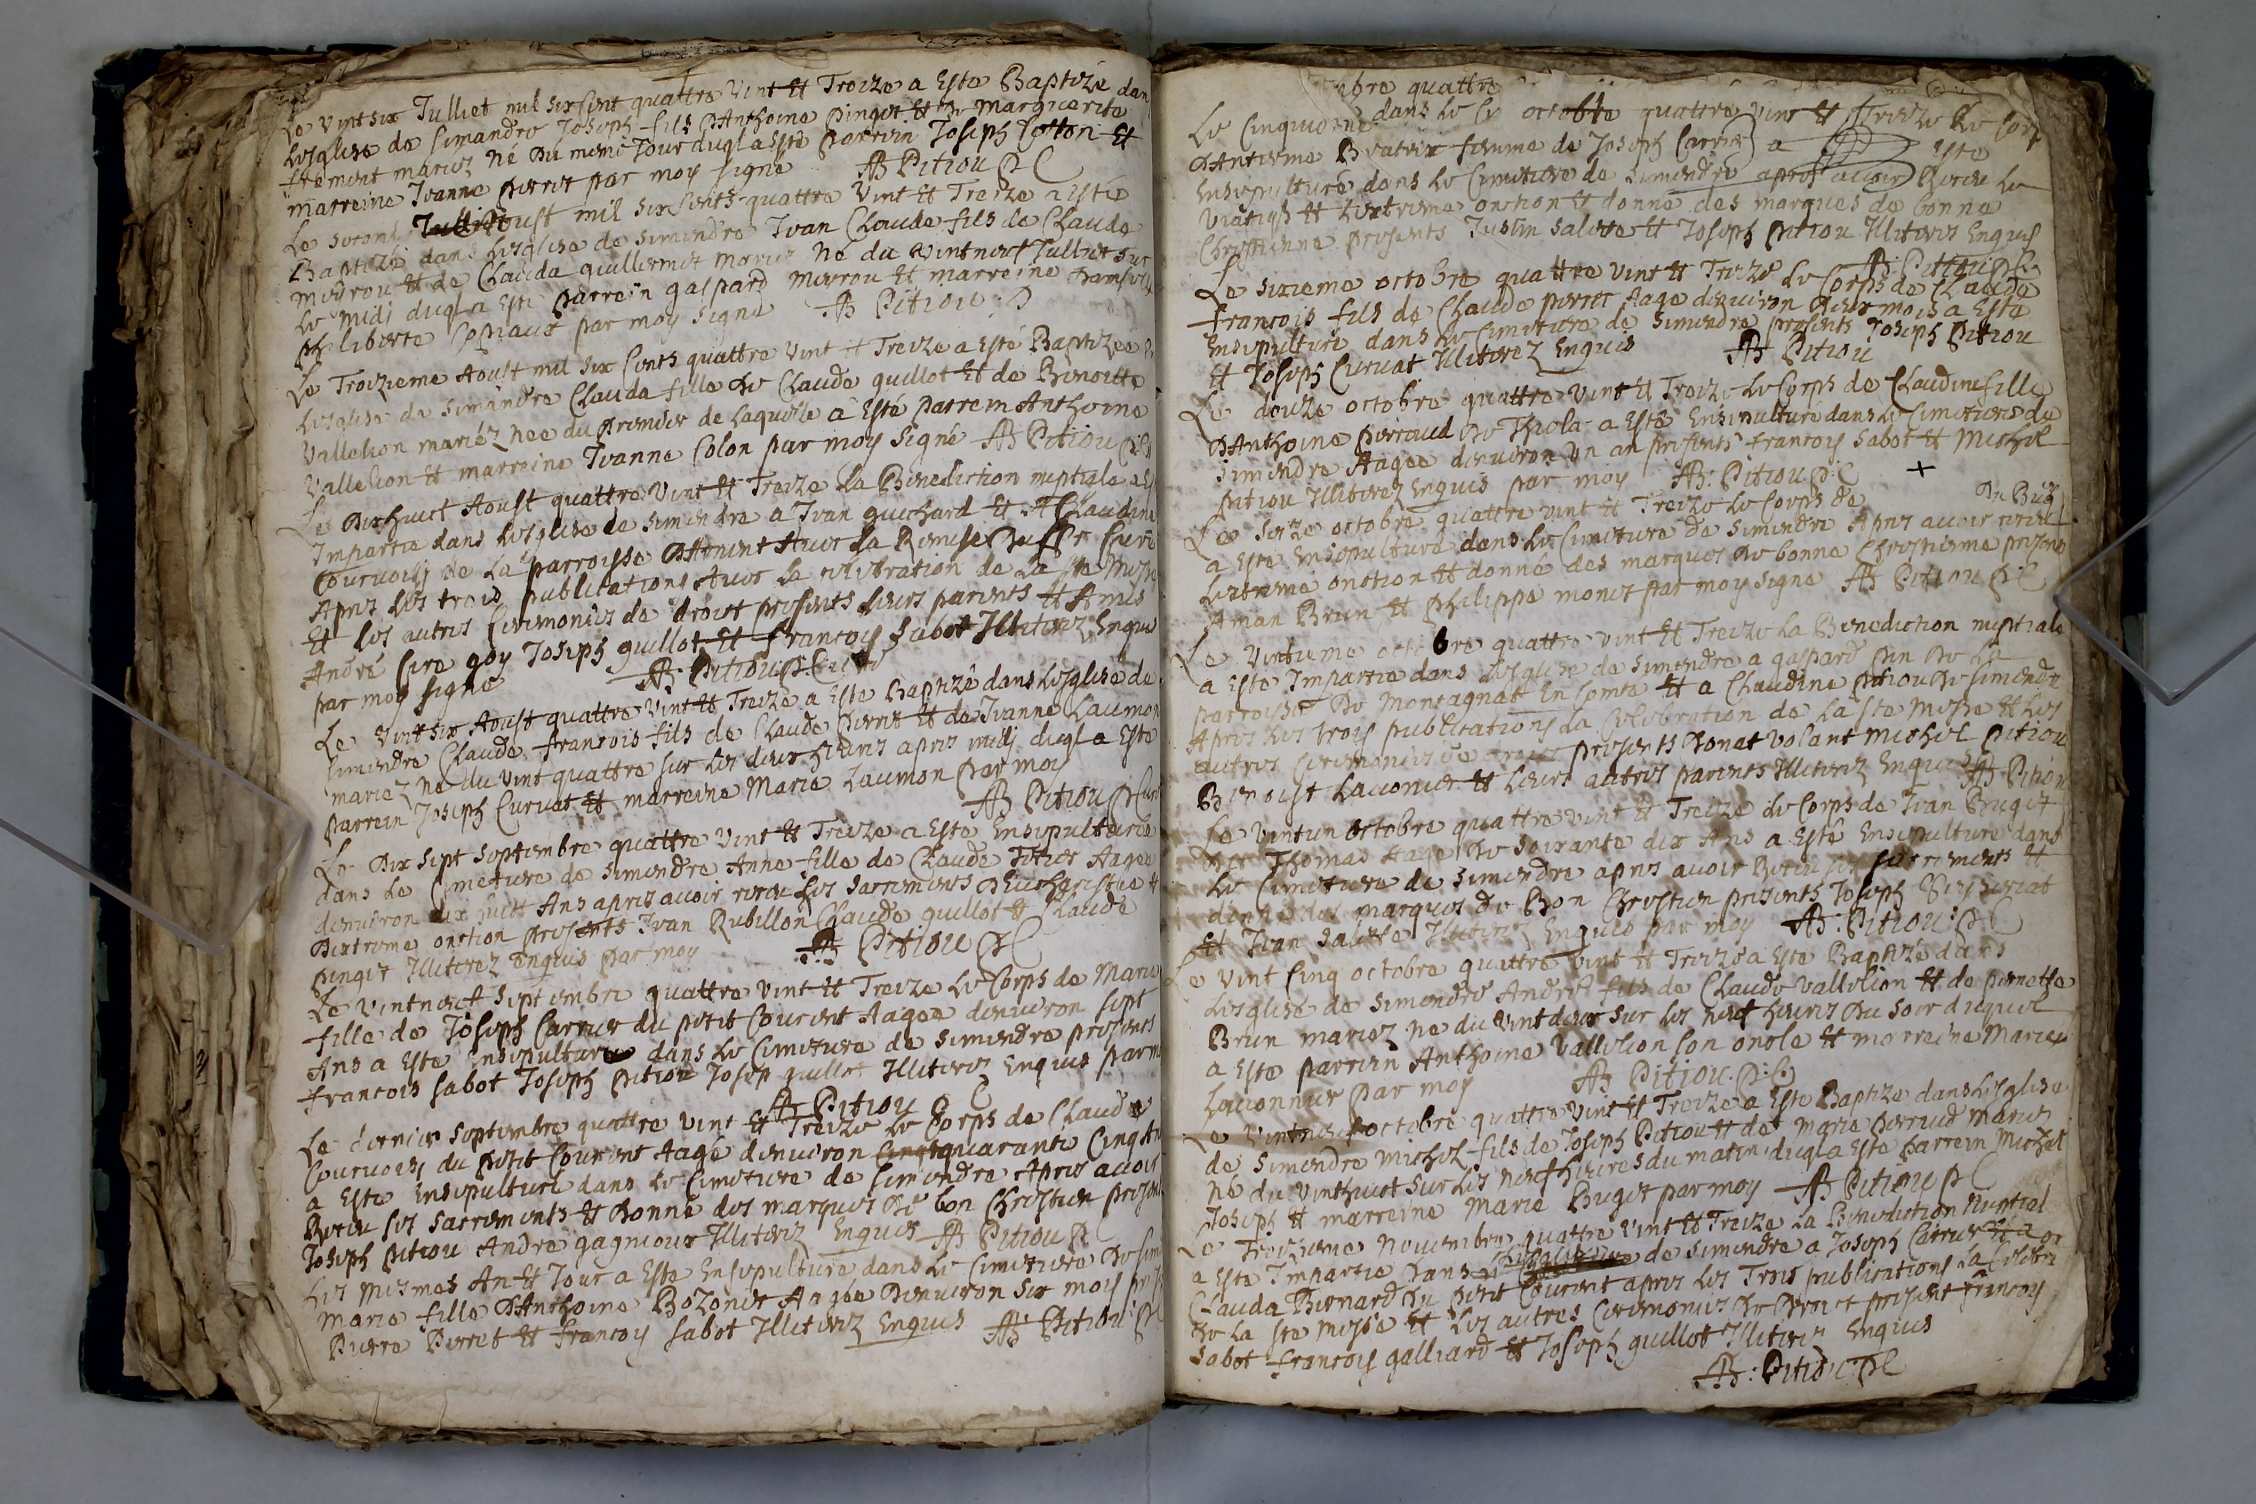 Le Vintsix Julliet mil six Cent quattre Vint et Treize a Este Baptizé dan
Lesglise de Simandre Joseph fils D'Anthoine Pinget et de Marguerite
frement mariez né du meme Jour duql a Este parrein Joseph Cotton et
marreine Jeanne perret par moy signé AB Pitiou P C
Le second Aoust mil six Cents quattre Vint et Treize a esté
Baptizé dans Lesglise de Simendre Jean Claude fils de Claude
Moirou et de Clauda guillermet mariez né du Vintneuf Julliet sur
Le midi duql a este parrein gaspard Moirou et marreine
philiberte par moy signé AB Pitiou P
Le Troizieme Aoust mil six Cents quattre Vint et Treize a esté Baptizee
Lesglise de Simandre Clauda fille de Claude guillot et de Benoitte
Vallelion mariéz nee du premier de laquelle a Esté parrein Anthoine
Vallelion et marreine Jeanne Colon par moy signé AB Pitiou P C
Le Dixhuict Aoust quattre Vint et Treize La Benediction nuptiale a Es
Impartie dans Lesglise de Simendre a Jean guichard et A Claudine
Courvoisi de La parroisse Avec La Remise du Sr Curé
Apres Les trois publications Avec La celebration de La Ste Messe
Et Les autres Ceremonies de droict presents Leurs parents et Amis
André Joseph guillot et francois Sabot Illiterez Enquis
par moy signé AB Pitiou P Curé
Le Vintsix Aoust quattre Vint et Treize a Este Baptizé dans Lesglise de
Simendre Claude francois fils de Claude perret et de Jeanne Laumon
mariez né du Vint quattre sur Les deux heures apres midi duql a Este
parrein Joseph Curvat et marreine Marie Laumon par moy
AB Pitiou P Cur
Le Dix sept Septembre quattre Vint et Treize a Este Ensepulturée
dans Le Cimetiere de Simendre Anne fille de Claude Agee
denviron dix huict Ans apres avoir receu Les Sacrements D'Eucharistie et
Dextreme onction presents Jean Rubillon Claude guillot et Claude
pinget Illiterez Enquis par moy AB Pitiou P C
Le Vintneuf Septembre quattre Vint et Treize Le Corps de Marie
fille de Joseph Carrier du petit Courent Aagee denviron sept
Ans a Este Ensepulturé dans Le Cimetiere de Simendre presents
francois Sabot Joseph Pitiou Josep guillot Illiterez Enquis par m
AB Pitiou P C
Le dernier Septembre quattre Vint et Treize Le Corps de Claude
Courvoisi du petit Courent Aagé denviron quarante Cinq An
a Este Ensepulturé dans Le Cimetiere de Simendre Apres avoir
Receu ses Sacrements et Donné des marques de bon Chrestien present
Joseph Pitiou Andre gagnioux Illiterez Enquis AB Pitiou P C
Les Mesmes An et Jour a Este Ensepulturé dans Le Cimetiere de Sim
Marie fille D'Anthoine Bozonet Aagee Denviron Six moys
Pierre Perret et francoy Sabot Illiterez Enquis AB Pitiou P C
mbre quattre
Le Cinquieme octobre quattre Vint et Treize Le Corp
D'Antoisme Beatrix femme de Joseph Carrier a Este
Ensepulturé dans Le Cimetiere de Simendre apres avoir Receu Le
Viatiq et Lextreme onction et donné des marques de bonne
Chrestienne presents Justin Salette et Joseph Pitiou Illiterez Enquis
AB Pitiou P C
Le sixieme octobre quattre Vint et Treize Le Corps de Claude
francois fils de Claude perret Aage denviron deux mois a Este
Ensepulturé dans Le Cimetiere de Simendre presents Joseph Pitiou
et Joseph Curvat Illiterez Enquis AB Pitiou
Le douze octobre quattre Vint et Treize Le Corps de Claudine fille
D'Anthoine perraud de Thiola a Esté Ensepulturé dans Le Cimetiere de
Simendre Aagee denviron Un an presents francoy Sabot et Michel
Pitiou Illiterez Enquis par moy AB: Pitiou P: C +
Le seze octobre quattre Vint et Treize Le Corps de
a Este Ensepulturé dans Le Cimetiere de Simendre Apres avoir receu
Lextreme onction et donné des marques de bonne Chrestienne presens
Aman Brun et Philippe monet par moy signé AB Pitiou P: C
Le Vintieme octobre quattre Vint et Treize La Benediction nuptiale
a Este Impartie dans Lesglise de Simendre a gaspard de La
parroisse de Montagnat En Comte et a Claudine Pitiou de Simendre
Apres Les trois publications La Celebration de La Ste Messe et Les
autres Ceremonies de droict presents Donat Volant Michel Pitiou
Benoist Lavionnet et Leurs autres parents Illiterez Enquis AB Pitiou
Le Vintun octobre quattre Vint et Treize Le Corps de Jean Buget
Thomas Aage de soixante dix Ans a Esté Ensepulturé dans
Le Cimetiere de Simendre apres avoir Receu ses sacrements et
donné des marques de Bon Chrestien presents Joseph
et Jean Salette Illiterez Enquis par moy AB: Pitiou: P: C
Le Vint Cinq octobre quattre Vint et Treize a Este Baptizé dans
Lesglise de Simendre André fils de Claude Vallelion et de pernette
Brun mariez né du Vintdeux sur Les neuf heures du Soir duquel
a Este parrein Anthoine Vallelion son oncle et marreine Marie
Lavionnet par moy AB Pitiou: P: C
Le Vintneuf octobre quattre Vint et Treize a Este Baptizé dans Lesglise
de Simendre Michel fils de Joseph Pitiou et de Marie perraud mariez
né du Vinthuict sur Les neuf heures du matin duql a Este parrein Michel
Joseph et marreine Marie Buget par moy AB Pitiou P C
Le Troizieme Novembre quattre Vint et Treize La Benediction Nuptial
a Este Impartie Dans Lesglise de Simendre a Joseph Carrier et a
Clauda Bernard du petit Courent apres Les Trois publications La Celebr
de La Ste Messe et Les autres Ceremonies de Droict present francoy
Sabot francoy galliard et Joseph guillot Illiterez Enquis
AB: Pitiou: P C